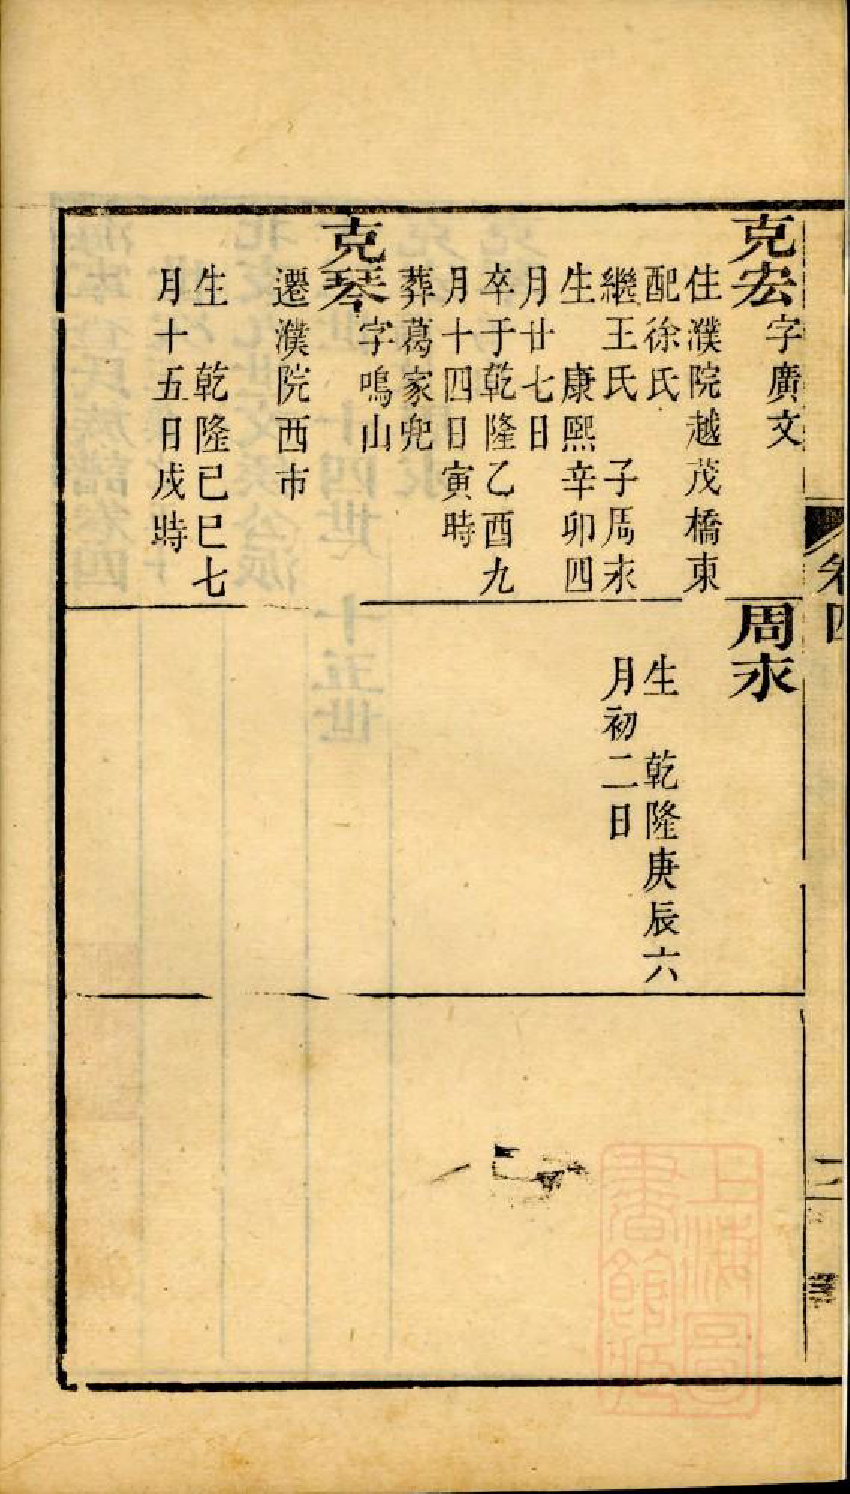 克宏
字廣文
住濮院越茂橋東
配徐氏
繼王氏 子周木
生 康熙辛卯四
月廿七日
卒于乾隆乙酉九
月十四日寅時
葬葛家兜
克琴
字鳴山
遷濮院西市
生 乾隆己巳七
月十五日戌時
周木
生 乾隆庚辰六
月初二日
卷四
二
上海圖
書館藏